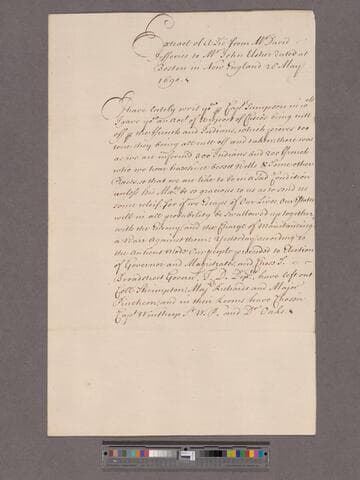 Extract of A Lre from Mr David
Jefferies to Mr John Usher dated at
Boston in New England 20 May
1690.
I have lately writ yo p Capt Simpson in wch
I gave yo an acct of Report of Casco being cutt
off p the French and Indians, which proves too
true they being all cutt off and taken there was
as we are informed 300 Indians and 200 French
who we hear have since beset Wells & Some other
Places, so that we are like to be in a sad Condition
unless his Maty be so gracious to us as to send us
some relief, for if we Escape of Our Lives, our Estates
will in all probability be swallowed up together
with the Enemy, and the Charge of Maintaining
a War Against them; Yesterday according to
the Antient Custom people proceeded to Election
of Governor and Magistrates, and Chose S.
Broadstreet Governr T. D. Depty have left out
Coll Shrimpton, Majr Richards and Major
Pincheon; and in their Rooms have Chosen
Capt Winthrop Sr W. P. and Dr Oakes.